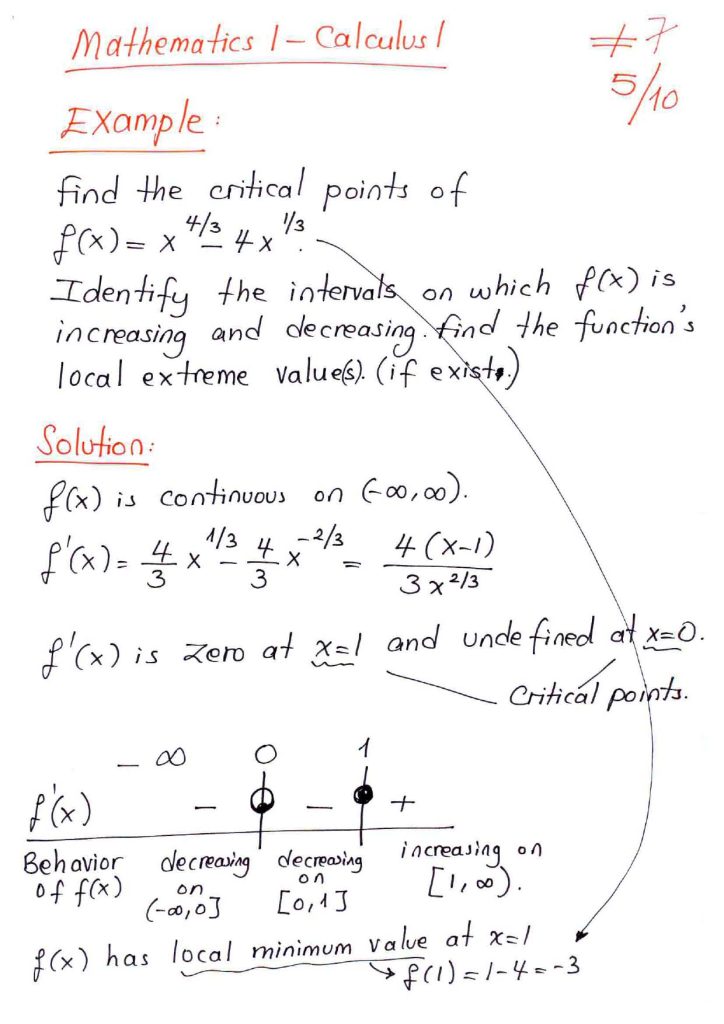 Mathematics 1 – Calculus 1
#7
5/10
Example:
find the critical points of
f(x) = x^4/3 – 4x^1/3.
Identify the intervals on which f(x) is
increasing and decreasing. find the function's
local extreme value(s). (if exist.)
Solution:
f(x) is continuous on (-∞,∞).
f'(x) = 4/3 x^1/3 – 4/3 x^-2/3 = 4(x-1)/3x^2/3
f'(x) is zero at x=1 and undefined at x=0.
Critical points.
– ∞ 0 1
f'(x) – – +
Behavior of f(x) decreasing on (-∞,0] decreasing on [0,1] increasing on [1,∞).
f(x) has local minimum value at x=1
→ f(1) = 1-4 = -3